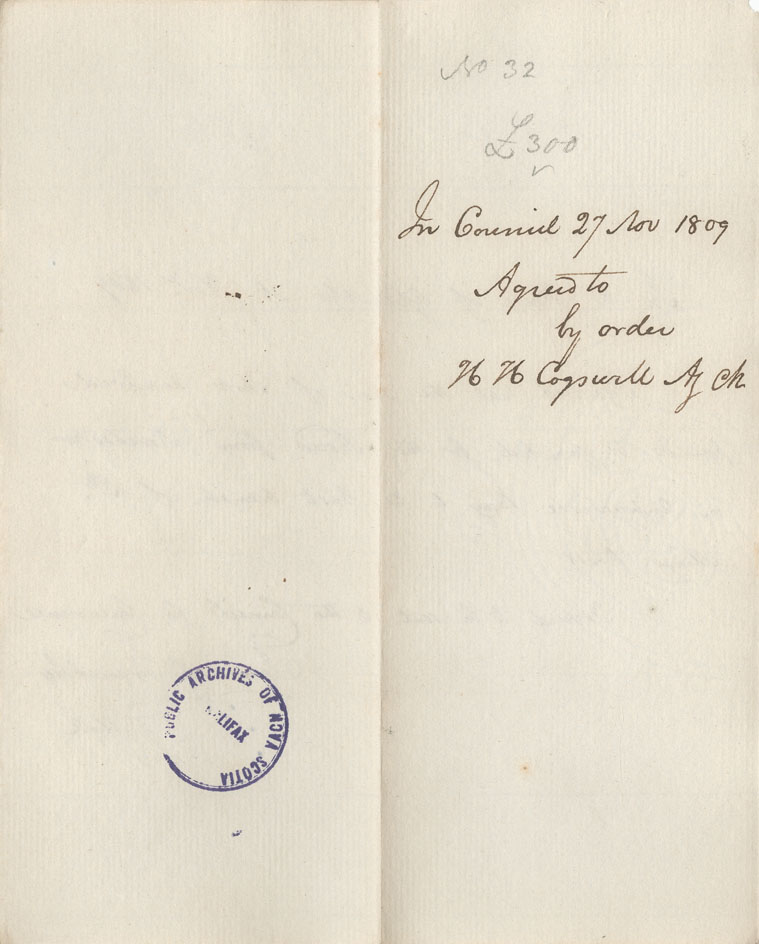 No 32
£300
In Council 27 Nov 1809
Agreed to
by order
H H Cogswell Ck
PUBLIC ARCHIVES OF NOVA SCOTIA
HALIFAX